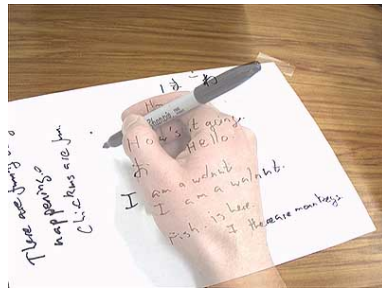 はこね
How's it going.
お Hello
I am a walnut.
I am a walnut.
Fish is here.
I there are monkeys
There are funny
happening
happening
Chickens are fun.